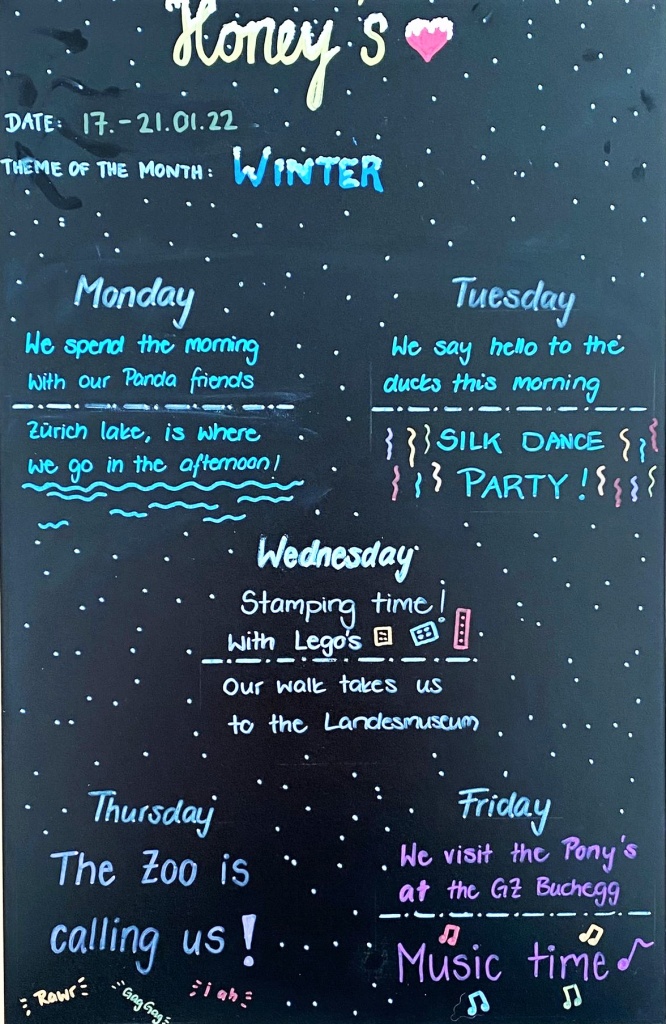 Honey's
DATE: 17.-21.01.22
THEME OF THE MONTH: WINTER
Monday
We spend the morning
with our Panda friends
Zürich lake, is where
we go in the afternoon!
Tuesday
We say hello to the
ducks this morning
SILK DANCE
PARTY!
Wednesday
Stamping time!
With Lego's
Our walk takes us
to the Landesmuseum
Thursday
The Zoo is
calling us!
Rawr
GagGag
I ah
Friday
We visit the Pony's
at the GZ Buchegg
Music time